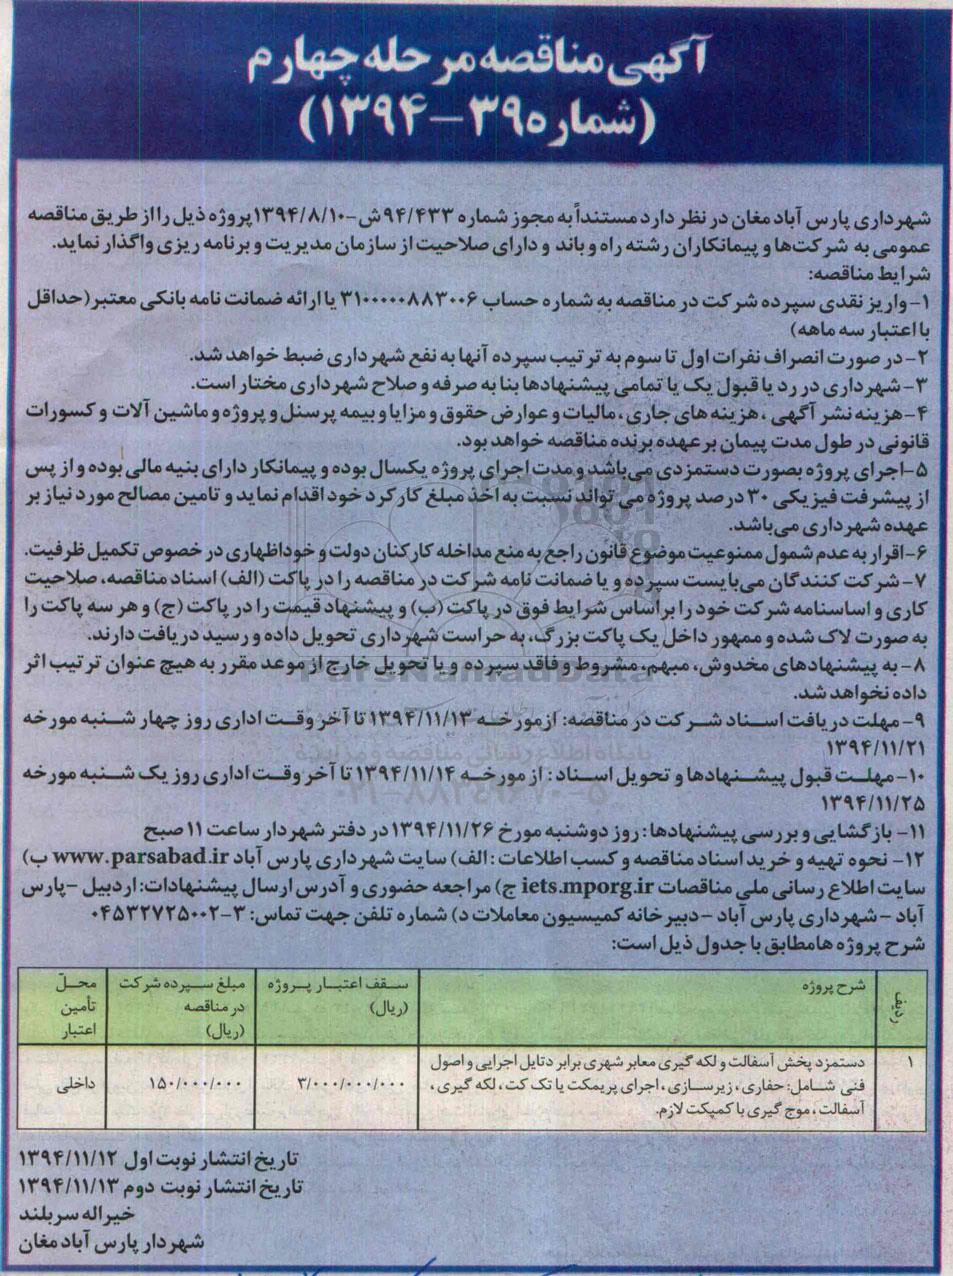 آگهی مناقصه مرحله چهارم
(شماره ۳۹-۱۳۹۴)
شهرداری پارس آباد مغان در نظر دارد مستنداً به مجوز شماره ۹۴/۴۳۳ش-۱۳۹۴/۸/۱۰پروژه ذیل را از طریق مناقصه
عمومی به شرکت‌ها و پیمانکاران رشته راه و باند و دارای صلاحیت از سازمان مدیریت و برنامه ریزی واگذار نماید.
شرایط مناقصه:
۱-واریز نقدی سپرده شرکت در مناقصه به شماره حساب ۳۱۰۰۰۰۰۸۸۳۰۰۶ یا ارائه ضمانت نامه بانکی معتبر(حداقل
با اعتبار سه ماهه)
۲-در صورت انصراف نفرات اول تا سوم به ترتیب سپرده آنها به نفع شهرداری ضبط خواهد شد.
۳-شهرداری در رد یا قبول یک یا تمامی پیشنهادها بنا به صرفه و صلاح شهرداری مختار است.
۴-هزینه نشر آگهی ، هزینه های جاری ، مالیات و عوارض حقوق و مزایا و بیمه پرسنل و پروژه و ماشین آلات و کسورات
قانونی در طول مدت پیمان بر عهده برنده مناقصه خواهد بود.
۵-اجرای پروژه بصورت دستمزدی می‌باشد و مدت اجرای پروژه یکسال بوده و پیمانکار دارای بنیه مالی بوده و از پس
از پیشرفت فیزیکی ۳۰ درصد پروژه می تواند نسبت به اخذ مبلغ کارکرد خود اقدام نماید و تامین مصالح مورد نیاز بر
عهده شهرداری می‌باشد.
۶-اقرار به عدم شمول ممنوعیت موضوع قانون راجع به منع مداخله کارکنان دولت و خوداظهاری در خصوص تکمیل ظرفیت.
۷-شرکت کنندگان می‌بایست سپرده و یا ضمانت نامه شرکت در مناقصه را در پاکت (الف) اسناد مناقصه، صلاحیت
کاری و اساسنامه شرکت خود را براساس شرایط فوق در پاکت (ب) و پیشنهاد قیمت را در پاکت (ج) و هر سه پاکت را
به صورت لاک شده و ممهور داخل یک پاکت بزرگ، به حراست شهرداری تحویل داده و رسید دریافت دارند.
۸-به پیشنهادهای مخدوش، مبهم، مشروط و فاقد سپرده و یا تحویل خارج از موعد مقرر به هیچ عنوان ترتیب اثر
داده نخواهد شد.
۹-مهلت دریافت اسناد شرکت در مناقصه: از مورخه ۱۳۹۴/۱۱/۱۳ تا آخر وقت اداری روز چهار شنبه مورخه
۱۳۹۴/۱۱/۲۱
۱۰-مهلت قبول پیشنهادها و تحویل اسناد : از مورخه ۱۳۹۴/۱۱/۱۴ تا آخر وقت اداری روز یک شنبه مورخه
۱۳۹۴/۱۱/۲۵
۱۱- بازگشایی و بررسی پیشنهادها : روز دوشنبه مورخ ۱۳۹۴/۱۱/۲۶ در دفتر شهردار ساعت ۱۱ صبح
۱۲- نحوه تهیه و خرید اسناد مناقصه و کسب اطلاعات : الف) سایت شهرداری پارس آباد www.parsabad.ir ب)
سایت اطلاع رسانی ملی مناقصات iets.mporg.ir ج) مراجعه حضوری و آدرس ارسال پیشنهادات: اردبیل -پارس
آباد -شهرداری پارس آباد -دبیرخانه کمیسیون معاملات د) شماره تلفن جهت تماس: ۳-۰۴۵۳۲۷۲۵۰۰۲
شرح پروژه ها مطابق با جدول ذیل است:
ردیف شرح پروژه سقف اعتبار پروژه (ریال) مبلغ سپرده شرکت در مناقصه (ریال) محل تأمین اعتبار
۱ دستمزد پخش آسفالت و لکه گیری معابر شهری برابر دتایل اجرایی و اصول
فنی شامل: حفاری ، زیرسازی ، اجرای پریمکت یا تک کت ، لکه گیری ، ۳/۰۰۰/۰۰۰/۰۰۰ ۱۵۰/۰۰۰/۰۰۰ داخلی
آسفالت ، موج گیری با کمپکت لازم.
تاریخ انتشار نوبت اول ۱۳۹۴/۱۱/۱۲
تاریخ انتشار نوبت دوم ۱۳۹۴/۱۱/۱۳
خیراله سربلند
شهردار پارس آباد مغان
ParsNamadData
پایگاه اطلاع رسانی مناقصه و مزایده
۰۲۱-۸۸۳۴۹۶۷۰-۵